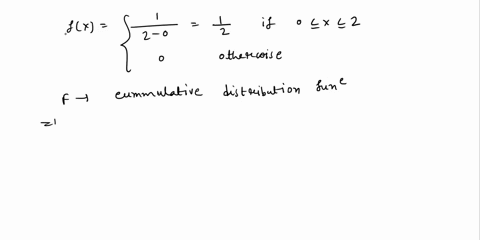 f(x) = { 1/(2-0) = 1/2 if 0 ≤ x ≤ 2
0 otherwise
F → cummulative distribution funᶜ
=)